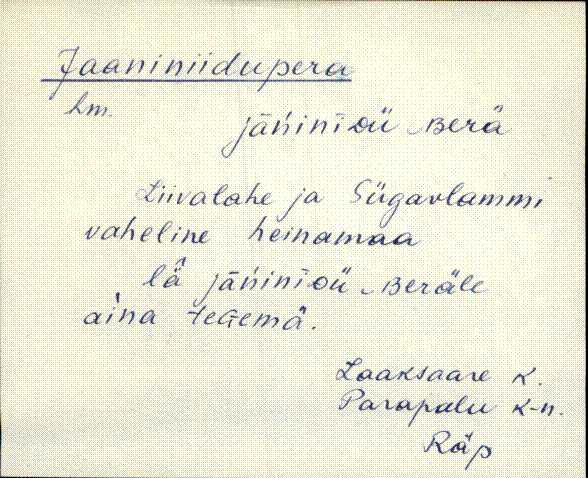 Jaaniniidupera
hm.
jäńinīDü Berä
Liivalahe ja Sügavlammi
vaheline heinamaa
lǟ jäńinīDü Beräle
aina teGemä.
Laaksaare k.
Parapalu k-n.
Räp